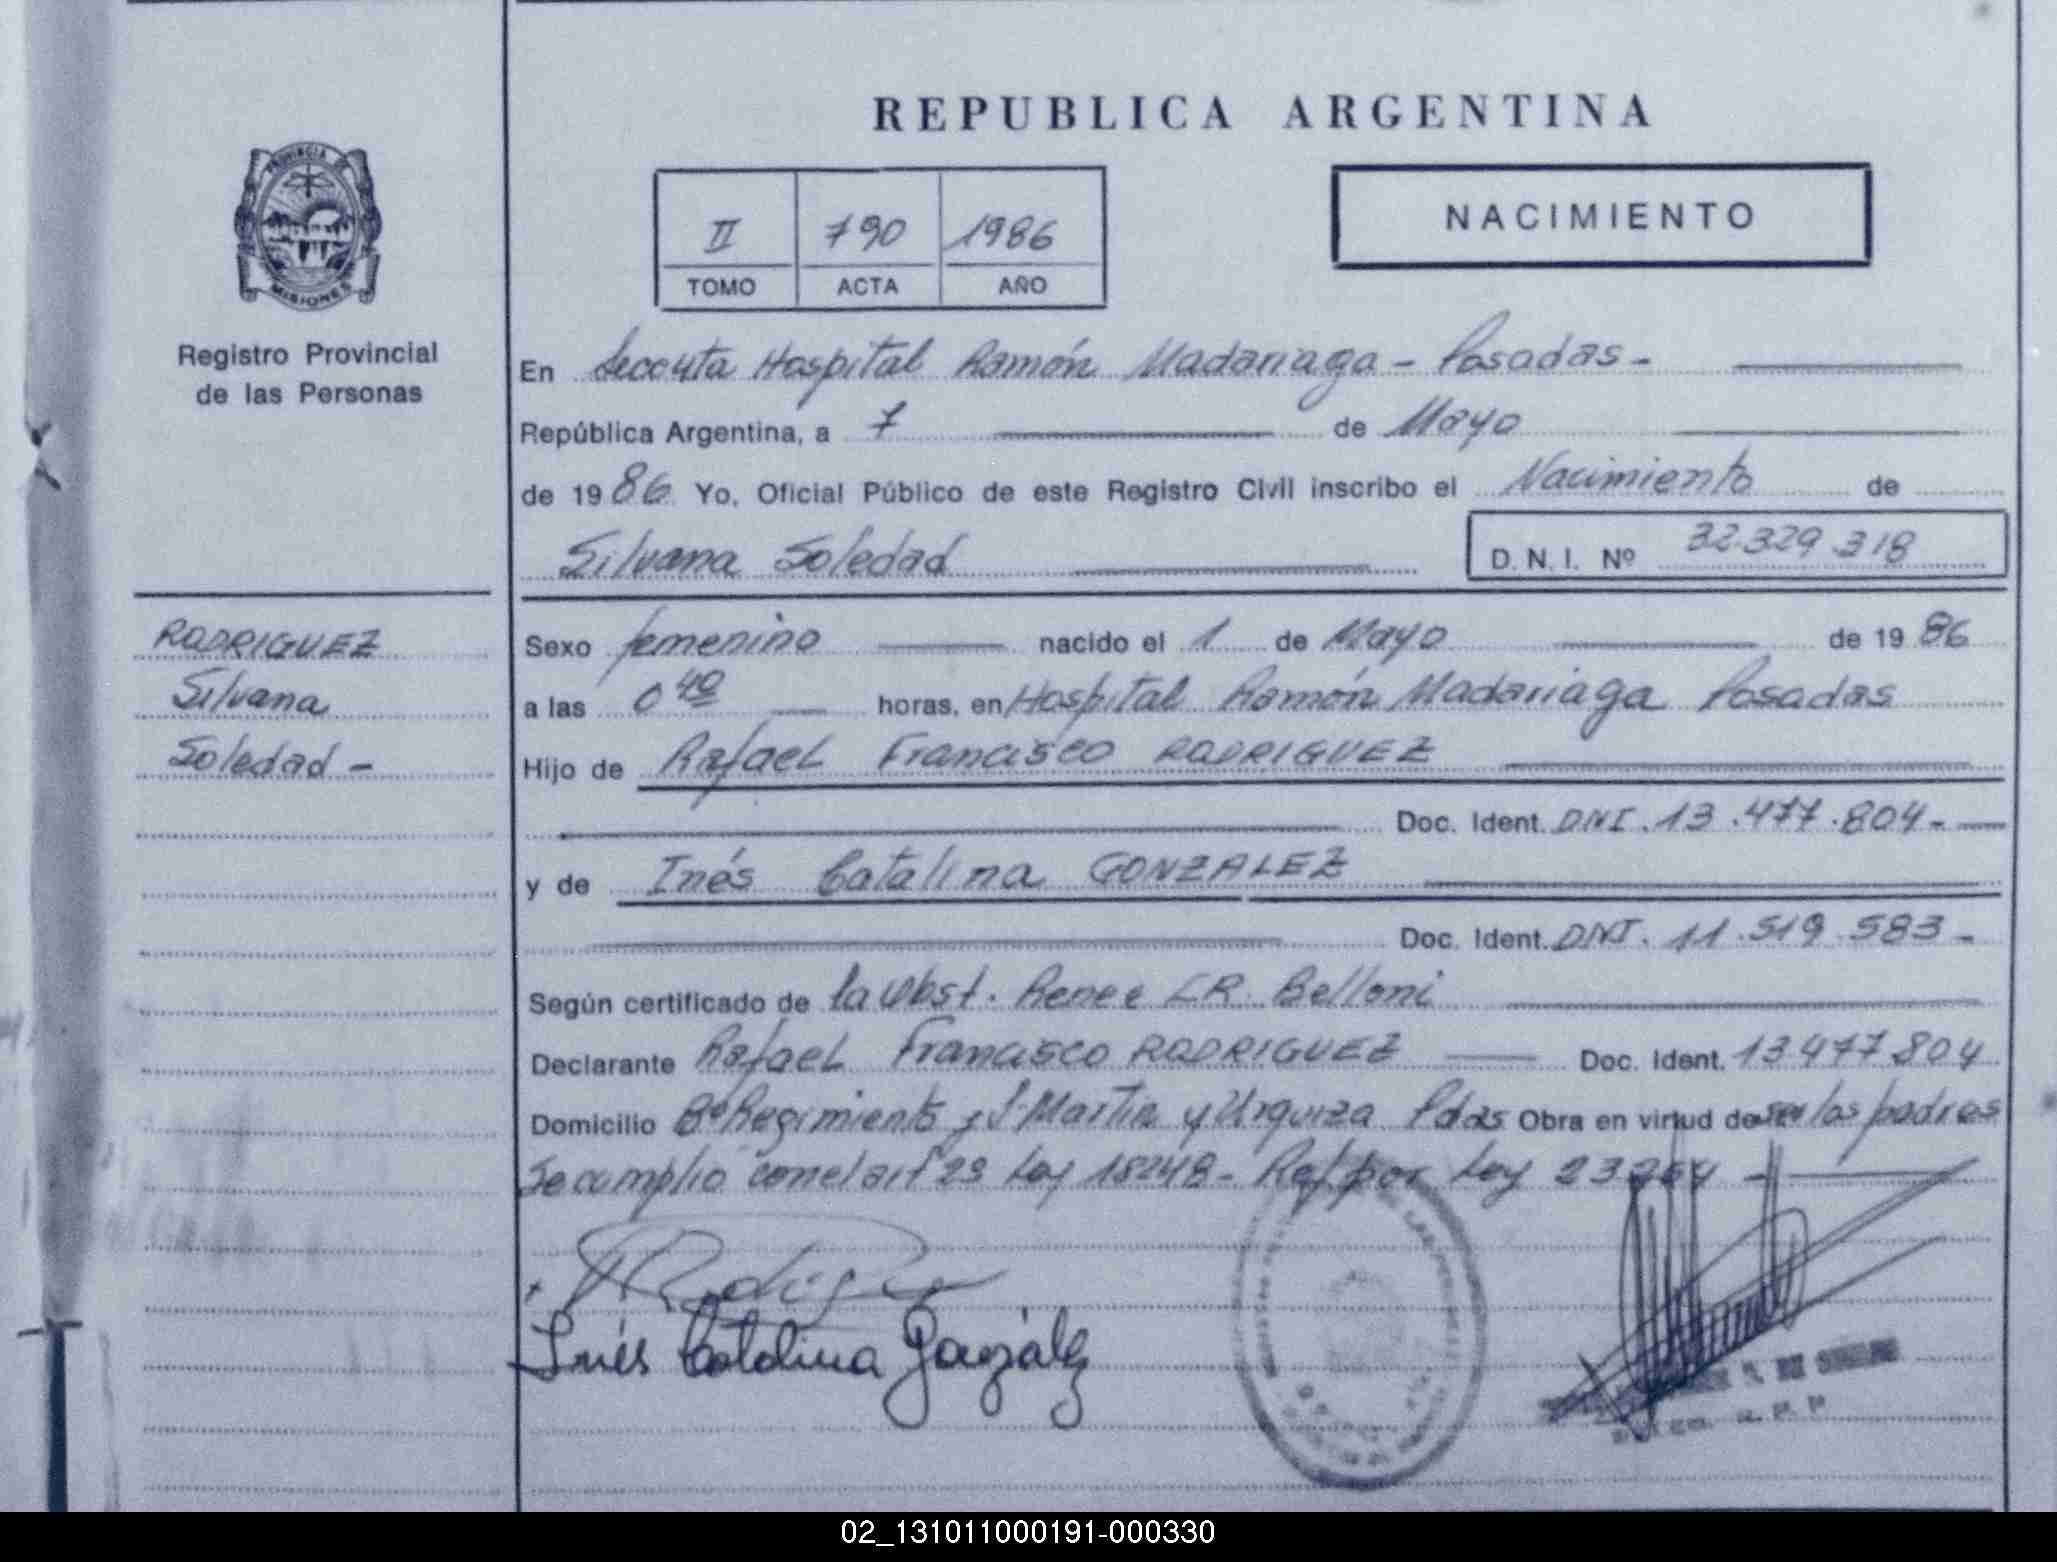 REPUBLICA ARGENTINA
PROVINCIA DE
MISIONES
Registro Provincial
de las Personas
II 790 1986
TOMO ACTA AÑO
NACIMIENTO
En Hospital Ramón Madariaga - Posadas -
República Argentina, a 7 de Mayo
de 1986. Yo, Oficial Público de este Registro Civil inscribo el Nacimiento de
Silvana Soledad D. N. I. Nº 32.329.318
RODRIGUEZ
Silvana
Soledad -
Sexo femenino nacido el 1 de Mayo de 1986
a las 0 40 horas, en Hospital Ramón Madariaga Posadas
Hijo de Rafael Francisco RODRIGUEZ
Doc. Ident. DNI. 13.477.804 -
y de Inés Catalina GONZALEZ
Doc. Ident. DNI. 11.519.583 -
Según certificado de la Obst. Renee Belloni
Declarante Rafael Francisco RODRIGUEZ Doc. Ident. 13477804
Domicilio Bº Regimiento y Urquiza Pdas Obra en virtud de ser los padres
Se cumplio con el art 23 Ley 18248 - Ref por Ley 23264 -
Inés Catalina González
02_131011000191-000330